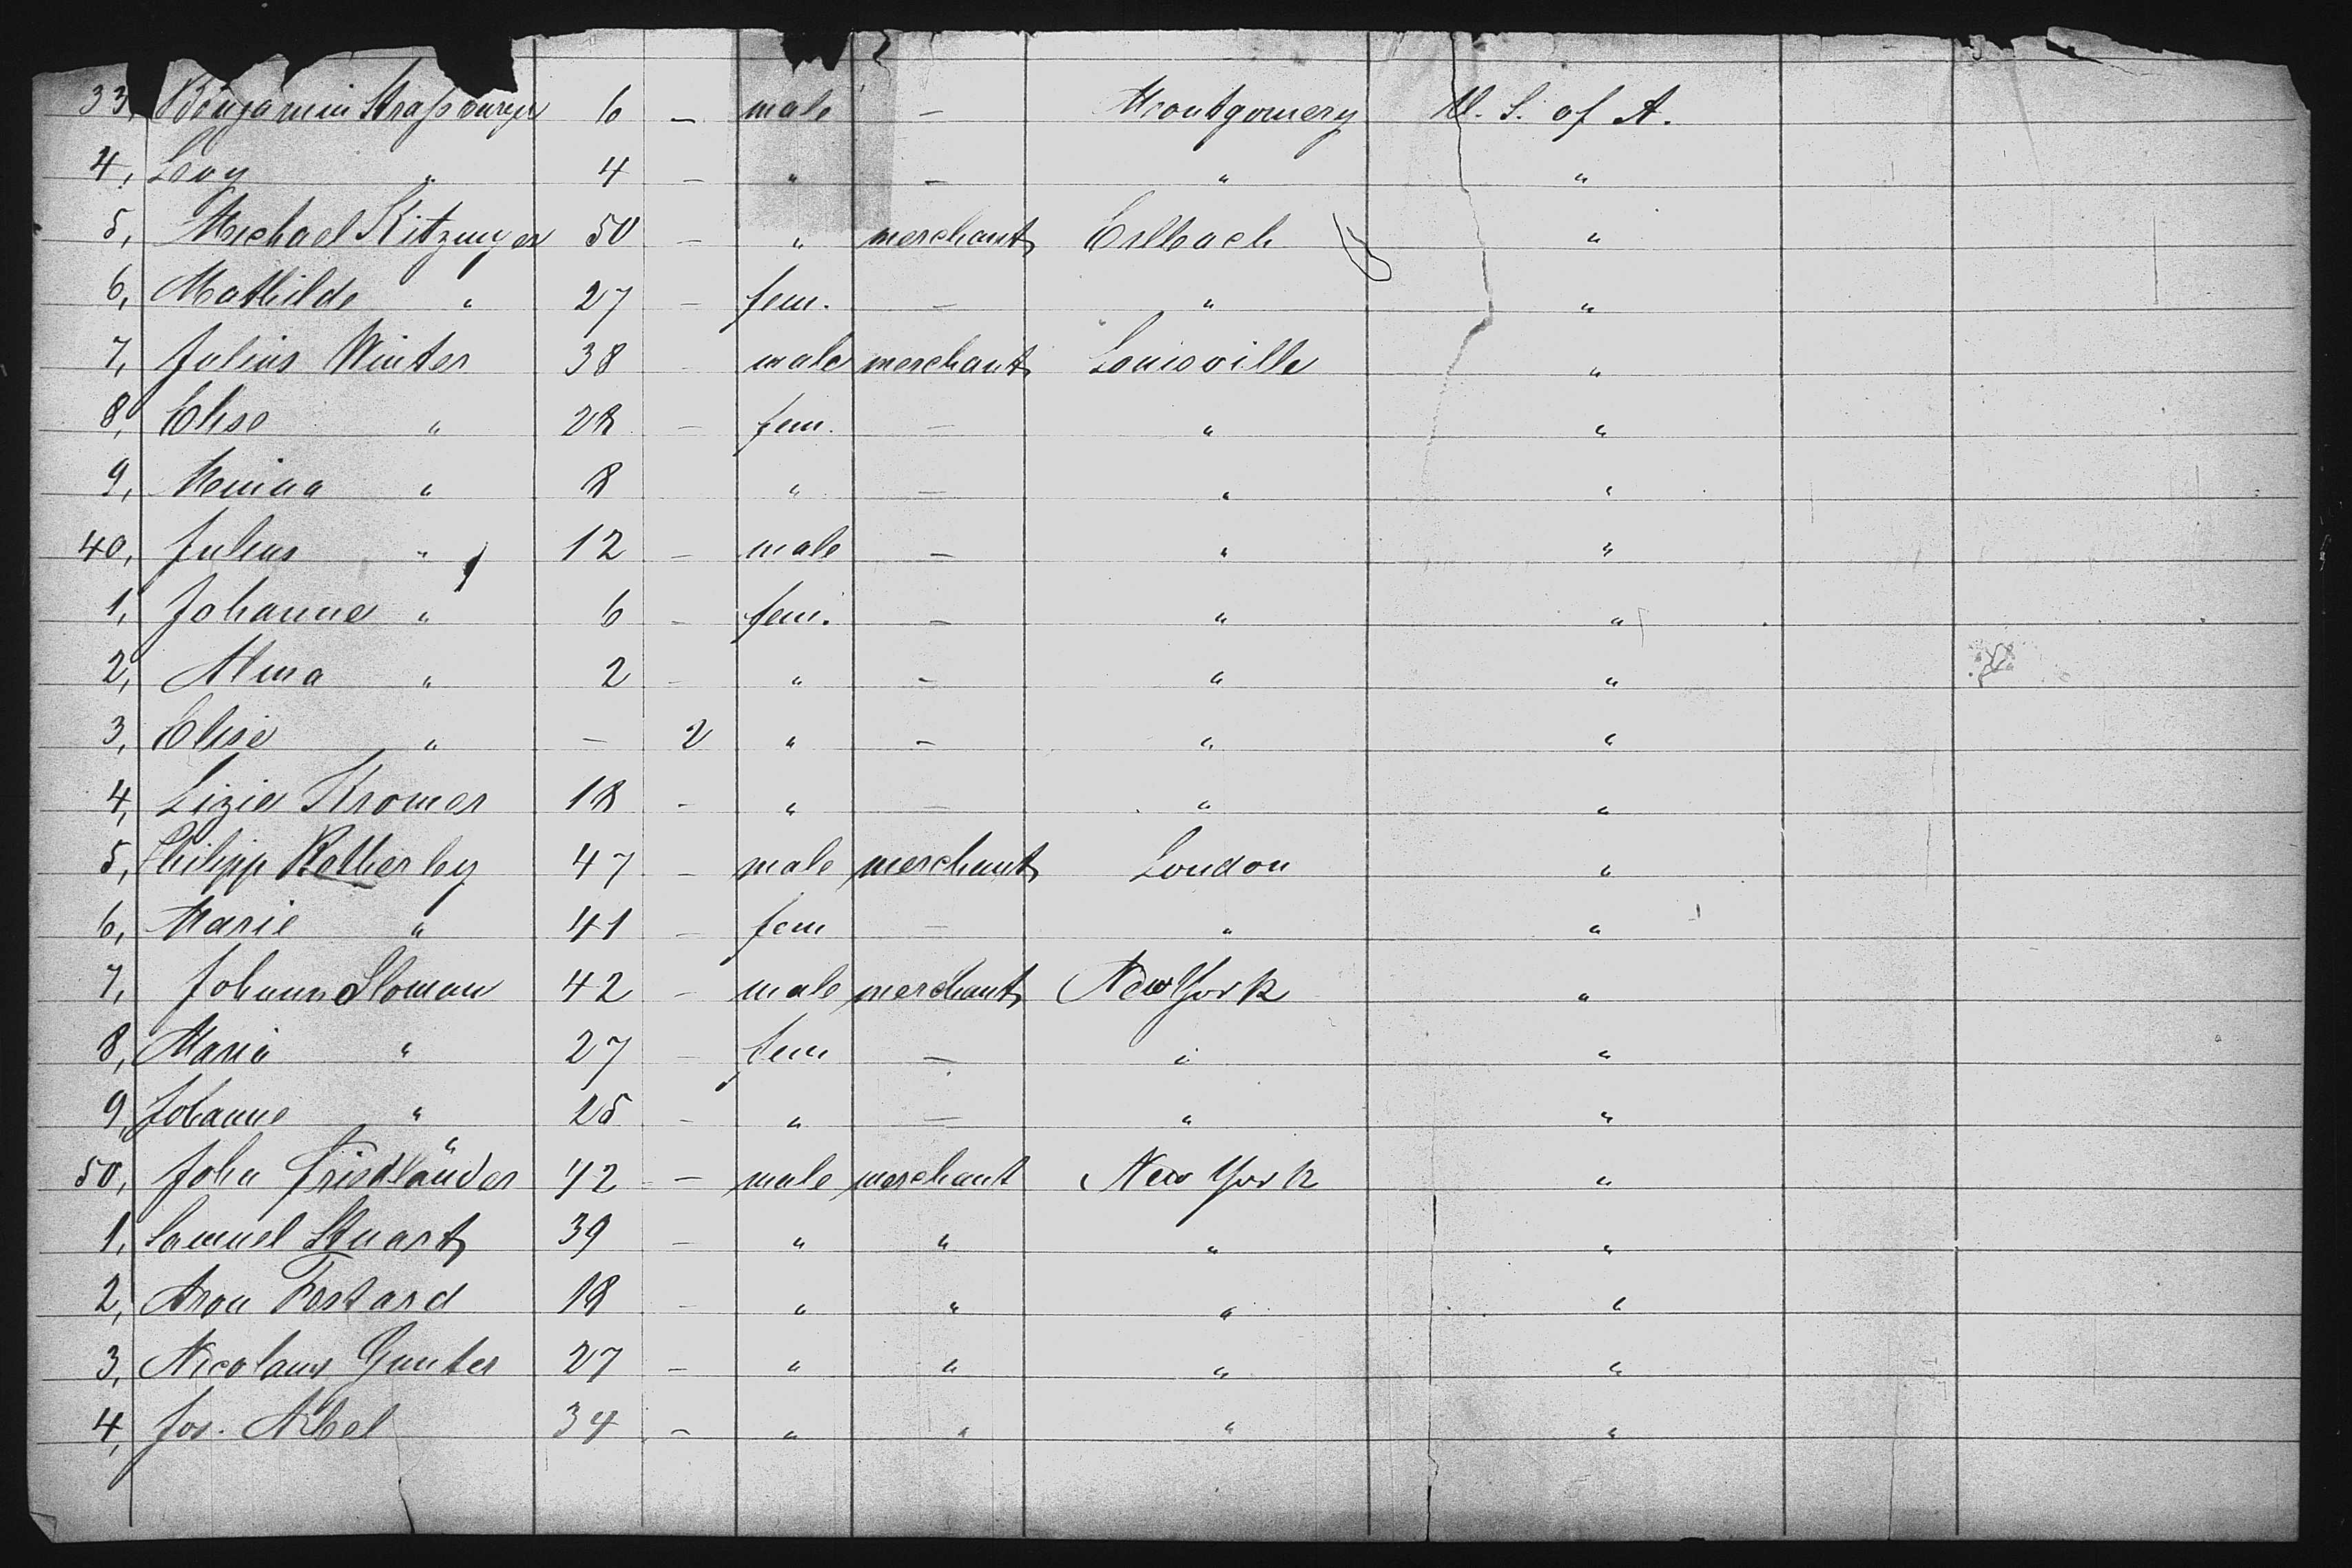 33, Benjamin Strassburger 6 - male - Montgomery U. S. of A.
4, Levy " 4 - " - " "
5, Michael Kitzinger 50 - " merchant Erlbach "
6, Mathilde " 27 - fem. - " "
7, Julius Winter 38 male merchant Louisville "
8, Elise " 28 - fem. - " "
9, Minna " 8 " - " "
40, Julius " 12 - male - " "
1, Johanne " 6 - fem. - " "
2, Alma " 2 - " - " "
3, Elise " - 2 " - " "
4, Lizie Kromer 18 - " - " "
5, Philipp Rotherley 47 - male merchant London "
6, Marie " 41 - fem - " "
7, Johann Sloman 42 - male merchant New York "
8, Maria " 27 - fem - " "
9, Johanne " 25 - " - " "
50, John Friedländer 42 - male merchant New York "
1, Samuel Stuart 39 - " " " "
2, Aron Testard 18 - " " " "
3, Nicolaus Gunter 27 - " " " "
4, Jos. Abel 34 - " " " "